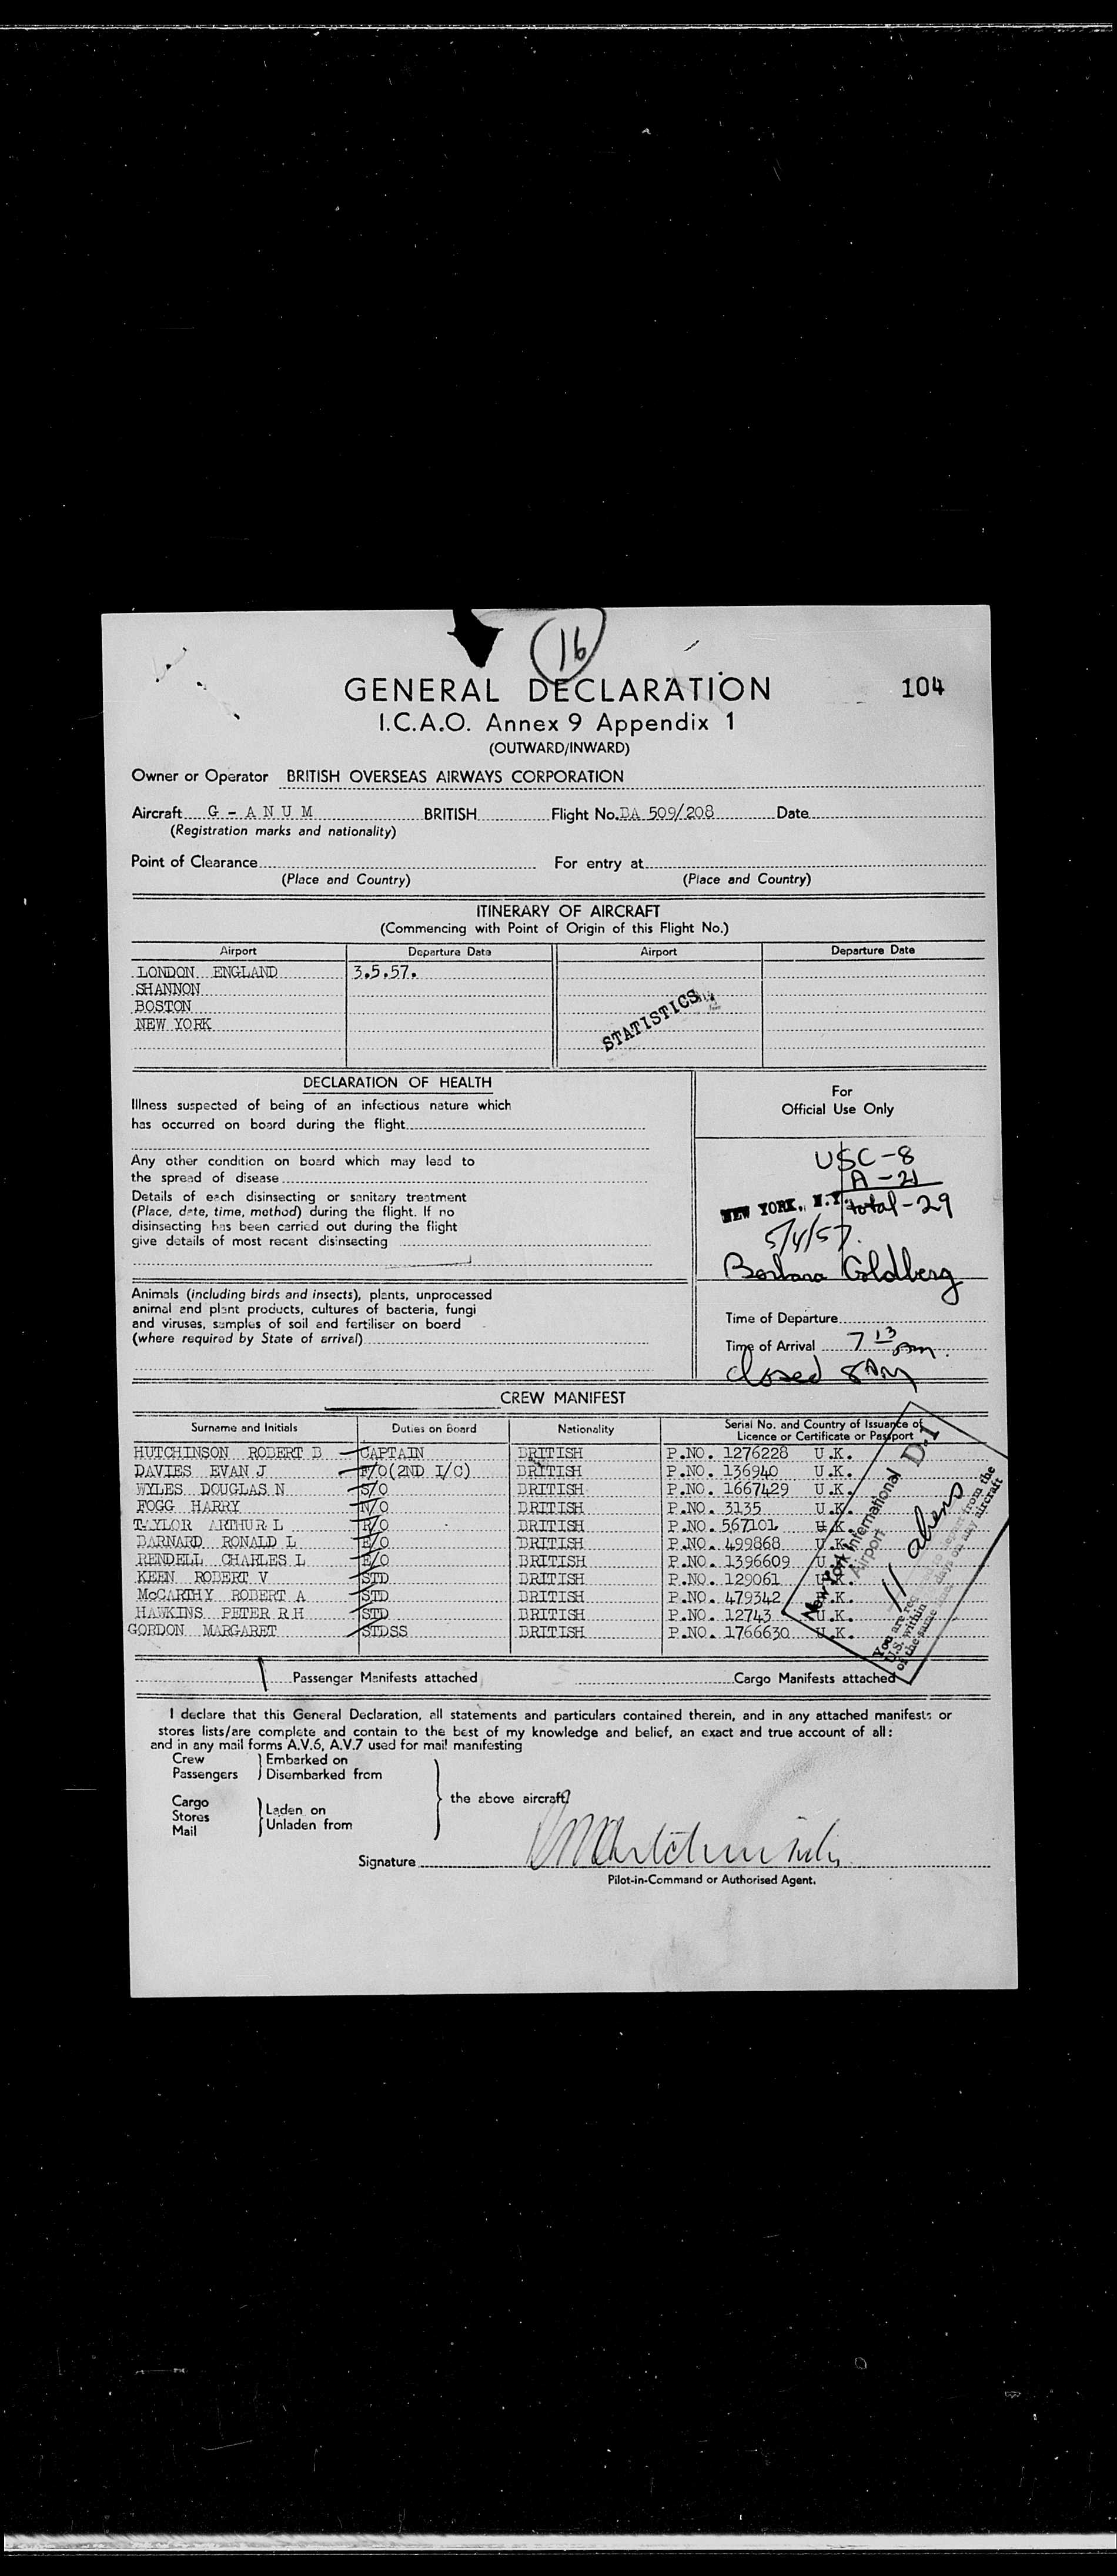 16
GENERAL DECLARATION 104
I.C.A.O. Annex 9 Appendix 1
(OUTWARD/INWARD)
Owner or Operator BRITISH OVERSEAS AIRWAYS CORPORATION
Aircraft G - A N U M BRITISH Flight No. BA 509/208 Date
(Registration marks and nationality)
Point of Clearance For entry at
(Place and Country) (Place and Country)
ITINERARY OF AIRCRAFT
(Commencing with Point of Origin of this Flight No.)
Airport Departure Date Airport Departure Date
LONDON ENGLAND 3.5.57.
SHANNON
BOSTON
NEW YORK
STATISTICS
DECLARATION OF HEALTH
Illness suspected of being of an infectious nature which
has occurred on board during the flight
Any other condition on board which may lead to
the spread of disease
Details of each disinsecting or sanitary treatment
(Place, date, time, method) during the flight. If no
disinsecting has been carried out during the flight
give details of most recent disinsecting
Animals (including birds and insects), plants, unprocessed
animal and plant products, cultures of bacteria, fungi
and viruses, samples of soil and fertiliser on board
(where required by State of arrival)
For
Official Use Only
USC-8
A-21
NEW YORK, N.Y. total-29
5/4/57.
Barbara Goldberg
Time of Departure
Time of Arrival 7 13 am.
closed 8 AM
CREW MANIFEST
Surname and Initials Duties on Board Nationality Serial No. and Country of Issuance of
Licence or Certificate or Passport
HUTCHINSON ROBERT B CAPTAIN BRITISH P.NO. 1276228 U.K.
DAVIES EVAN J F/O(2ND I/C) BRITISH P.NO. 136940 U.K.
WYLES DOUGLAS N S/O BRITISH P.NO. 1667429 U.K.
FOGG HARRY N/O BRITISH P.NO. 3135 U.K.
TAYLOR ARTHUR L R/O BRITISH P.NO. 567101 U.K.
BARNARD RONALD L E/O BRITISH P.NO. 499868 U.K.
RENDELL CHARLES L E/O BRITISH P.NO. 1396609 U.K.
KEEN ROBERT V STD BRITISH P.NO. 129061 U.K.
McCARTHY ROBERT A STD BRITISH P.NO. 479342 U.K.
HAWKINS PETER R H STD BRITISH P.NO. 12743 U.K.
GORDON MARGARET STDSS BRITISH P.NO. 1766630 U.K.
New York International D-1
Airport
11 aliens
You are from the
U.S. within on any aircraft
of the same
1 Passenger Manifests attached Cargo Manifests attached
I declare that this General Declaration, all statements and particulars contained therein, and in any attached manifests or
stores lists/are complete and contain to the best of my knowledge and belief, an exact and true account of all:
and in any mail forms A.V.6, A.V.7 used for mail manifesting
Crew Embarked on
Passengers Disembarked from
the above aircraft
Cargo Laden on
Stores Unladen from
Mail
Signature
Pilot-in-Command or Authorised Agent.